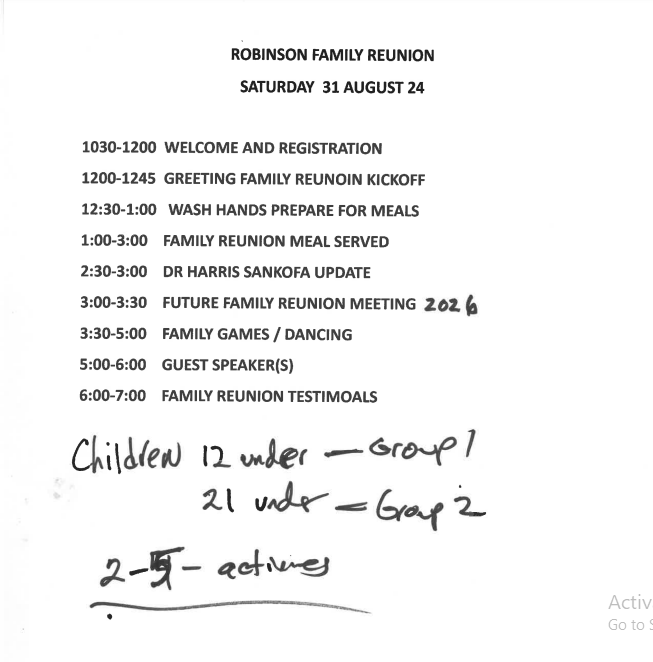 ROBINSON FAMILY REUNION
SATURDAY 31 AUGUST 24
1030-1200 WELCOME AND REGISTRATION
1200-1245 GREETING FAMILY REUNOIN KICKOFF
12:30-1:00 WASH HANDS PREPARE FOR MEALS
1:00-3:00 FAMILY REUNION MEAL SERVED
2:30-3:00 DR HARRIS SANKOFA UPDATE
3:00-3:30 FUTURE FAMILY REUNION MEETING 2026
3:30-5:00 FAMILY GAMES / DANCING
5:00-6:00 GUEST SPEAKER(S)
6:00-7:00 FAMILY REUNION TESTIMOALS
Children 12 under — Group 1
21 under = Group 2
2-5 -
Activ
Go to S